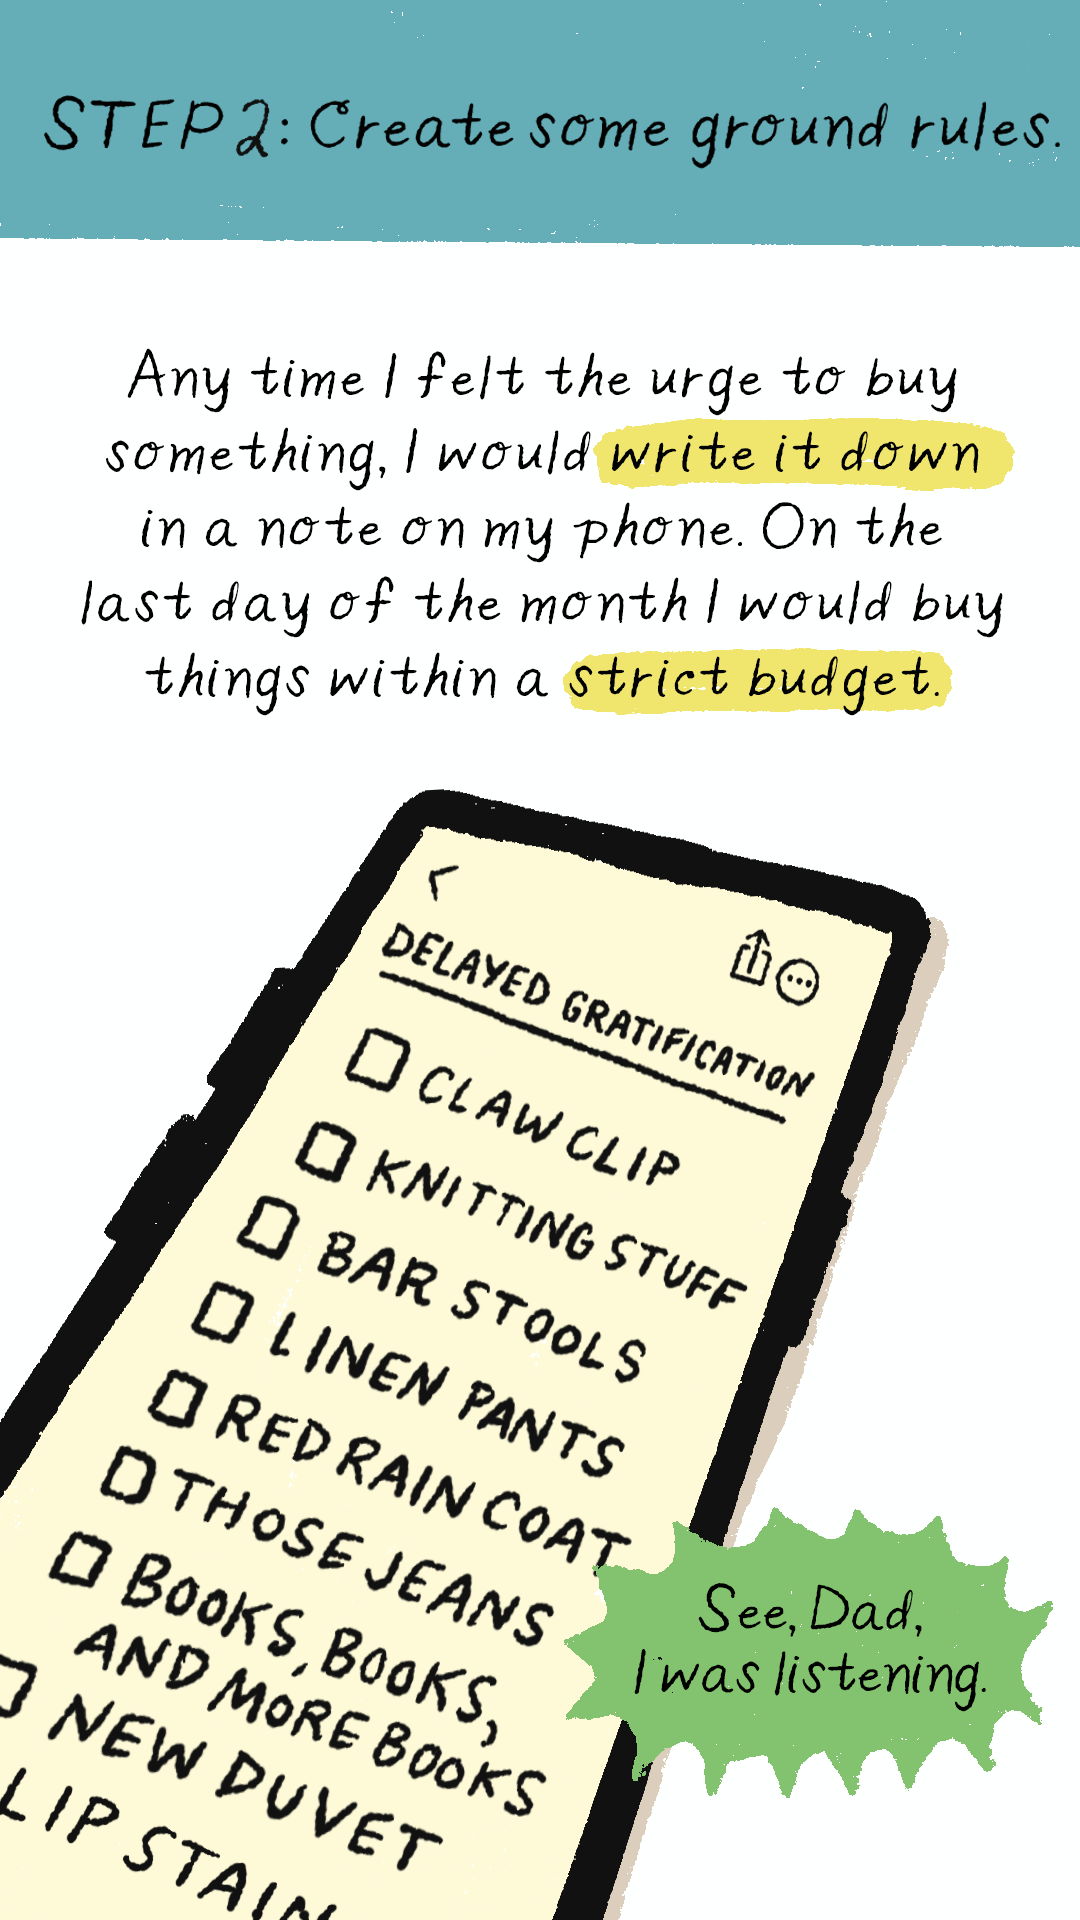 STEP 2: Create some ground rules.
Any time I felt the urge to buy
something, I would write it down
in a note on my phone. On the
last day of the month I would buy
things within a strict budget.
DELAYED GRATIFICATION
CLAW CLIP
KNITTING STUFF
BAR STOOLS
LINEN PANTS
RED RAIN COAT
THOSE JEANS
BOOKS, BOOKS,
AND MORE BOOKS
NEW DUVET
LIP STAIN
See, Dad,
I was listening.